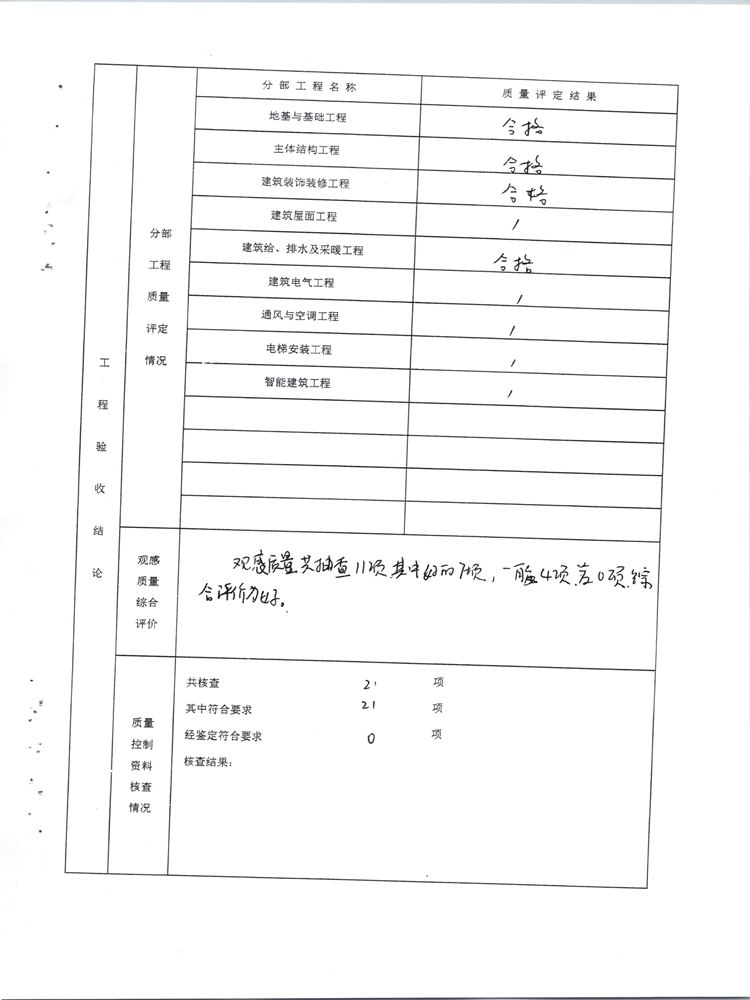 工程验收结论
分部工程质量评定情况
分部工程名称 质量评定结果
地基与基础工程 合格
主体结构工程 合格
建筑装饰装修工程 合格
建筑屋面工程 /
建筑给、排水及采暖工程 合格
建筑电气工程 /
通风与空调工程 /
电梯安装工程 /
智能建筑工程 /
观感质量综合评价
观感质量共抽查11项,其中好的7项,一般4项,差0项,综
合评价为好。
质量控制资料核查情况
共核查 21 项
其中符合要求 21 项
经鉴定符合要求 0 项
核查结果: